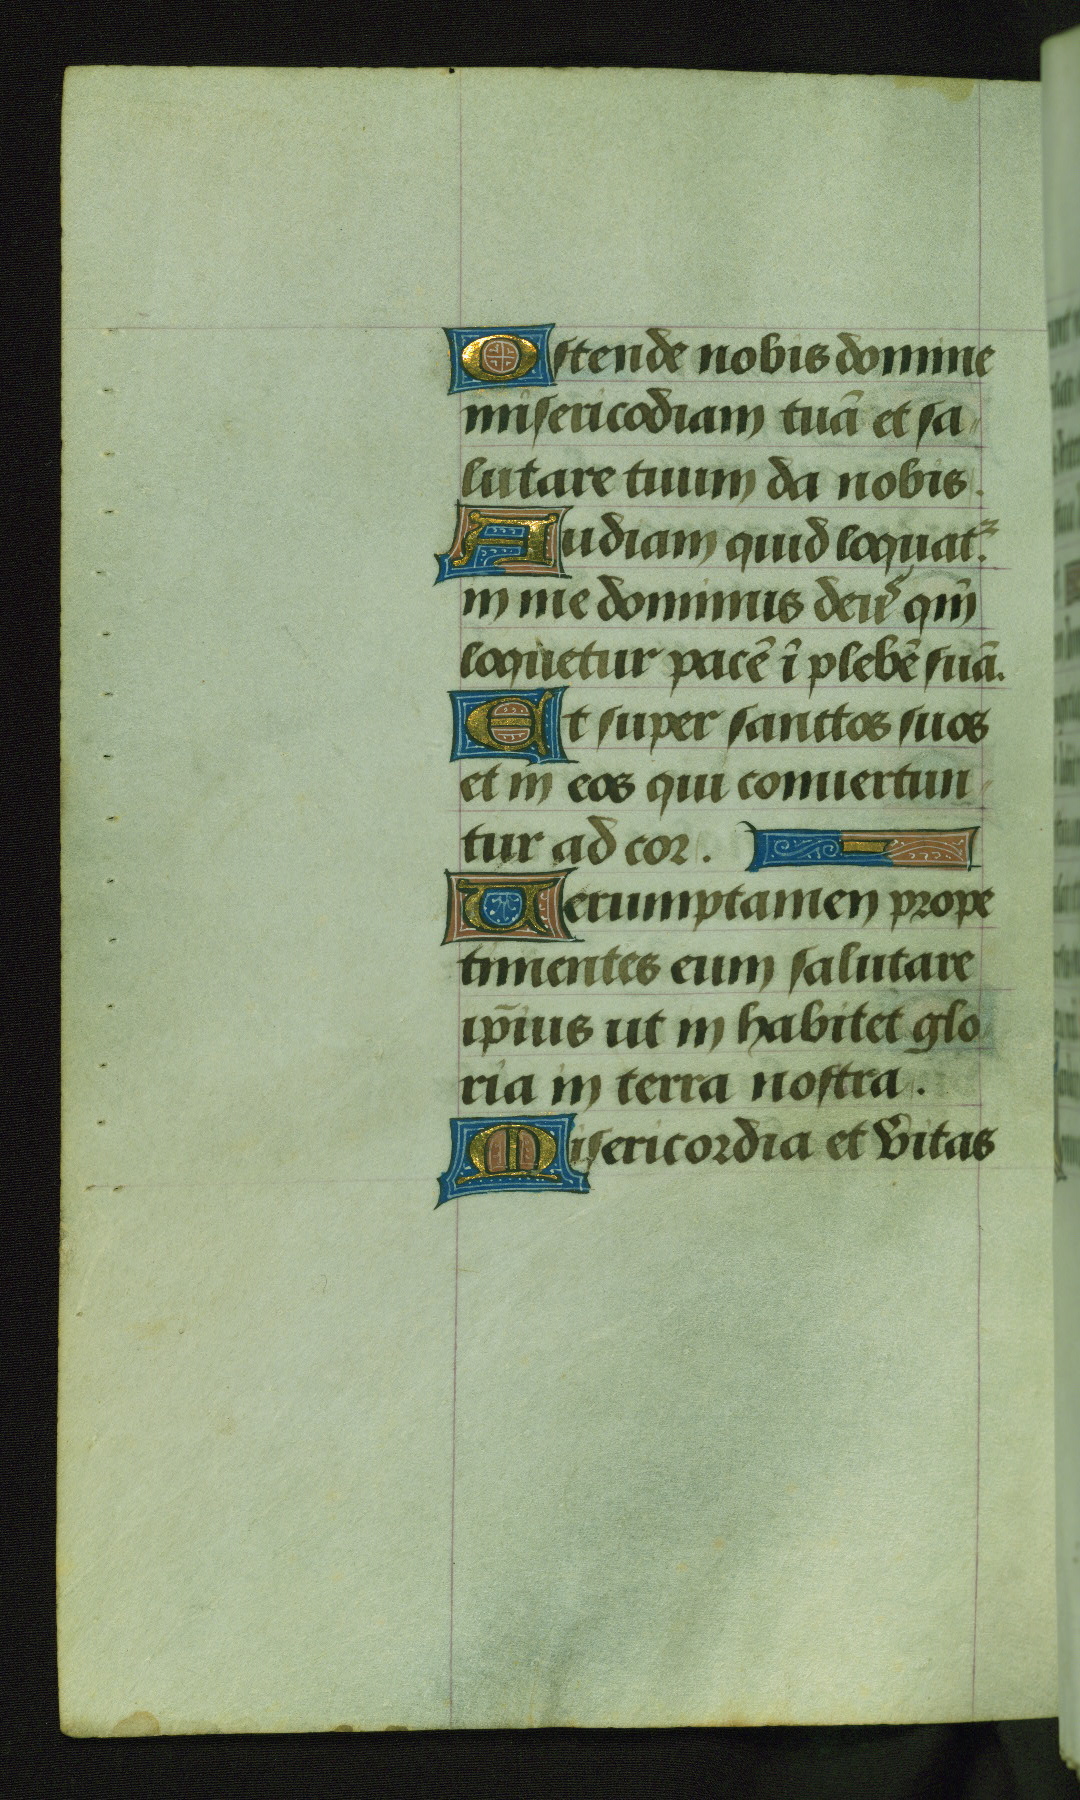 Ostende nobis domine
misericodiam tuā et sa
lutare tuum da nobis.
Audiam quid loquat᷑.
in me dominus deus qm̄
loquetur pacē ī plebē suā.
Et super sanctos suos
et in eos qui conuertun
tur ad cor.
Uerumptamen prope
timentes eum salutare
ip̄ius ut in habitet glo
ria in terra nostra.
Misericordia et v̄itas